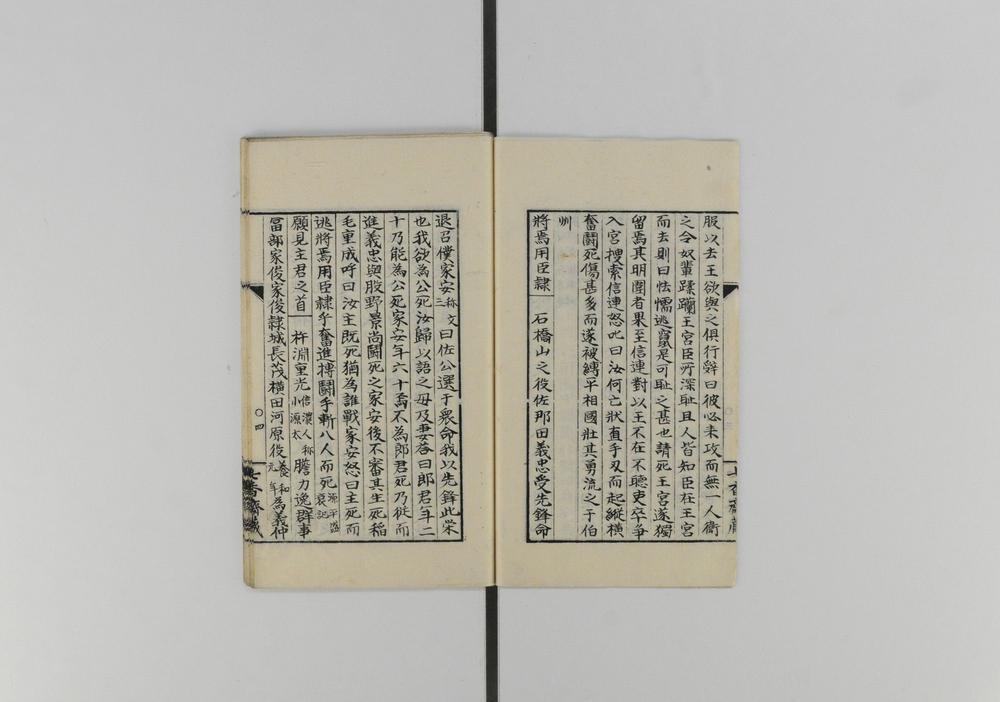 服以去王欲與之俱行辭曰彼必来攻而無一人衛
之令奴輩蹂躪王宮臣所深耻且人皆知臣在王宮
而去則曰怯懦逃竄是可耻之甚也請死王宮遂獨
留焉其明圍者果至信連對以王不在不聽吏卒爭
入宮搜索信連怒叱曰汝何亡狀直手刃而起縱横
奮鬪死傷甚多而遂被縛平相國壯其勇流之于伯
州
將焉用臣隷 石橋山之役佐那田義忠受先鋒命
退召僕家安称文三曰佐公選于衆命我以先鋒此栄
也我欲為公死汝歸以語之母及妻荅曰郎君年二
十乃能為公死家安年六十焉不為郎君死乃従而
進義忠與股野景尚鬪死之家安後不審其生死稲
毛重成呼曰汝主既死猶為誰戰家安怒曰主死而
逃將焉用臣隷乎奮進搏鬪手斬八人而死源平盛衰記
願見主君之首 杵淵重光信濃人称小源太膽力逸群事
冨部家俊家俊隷城長茂横田河原役養和元年為義仲
〇四
七香齋藏